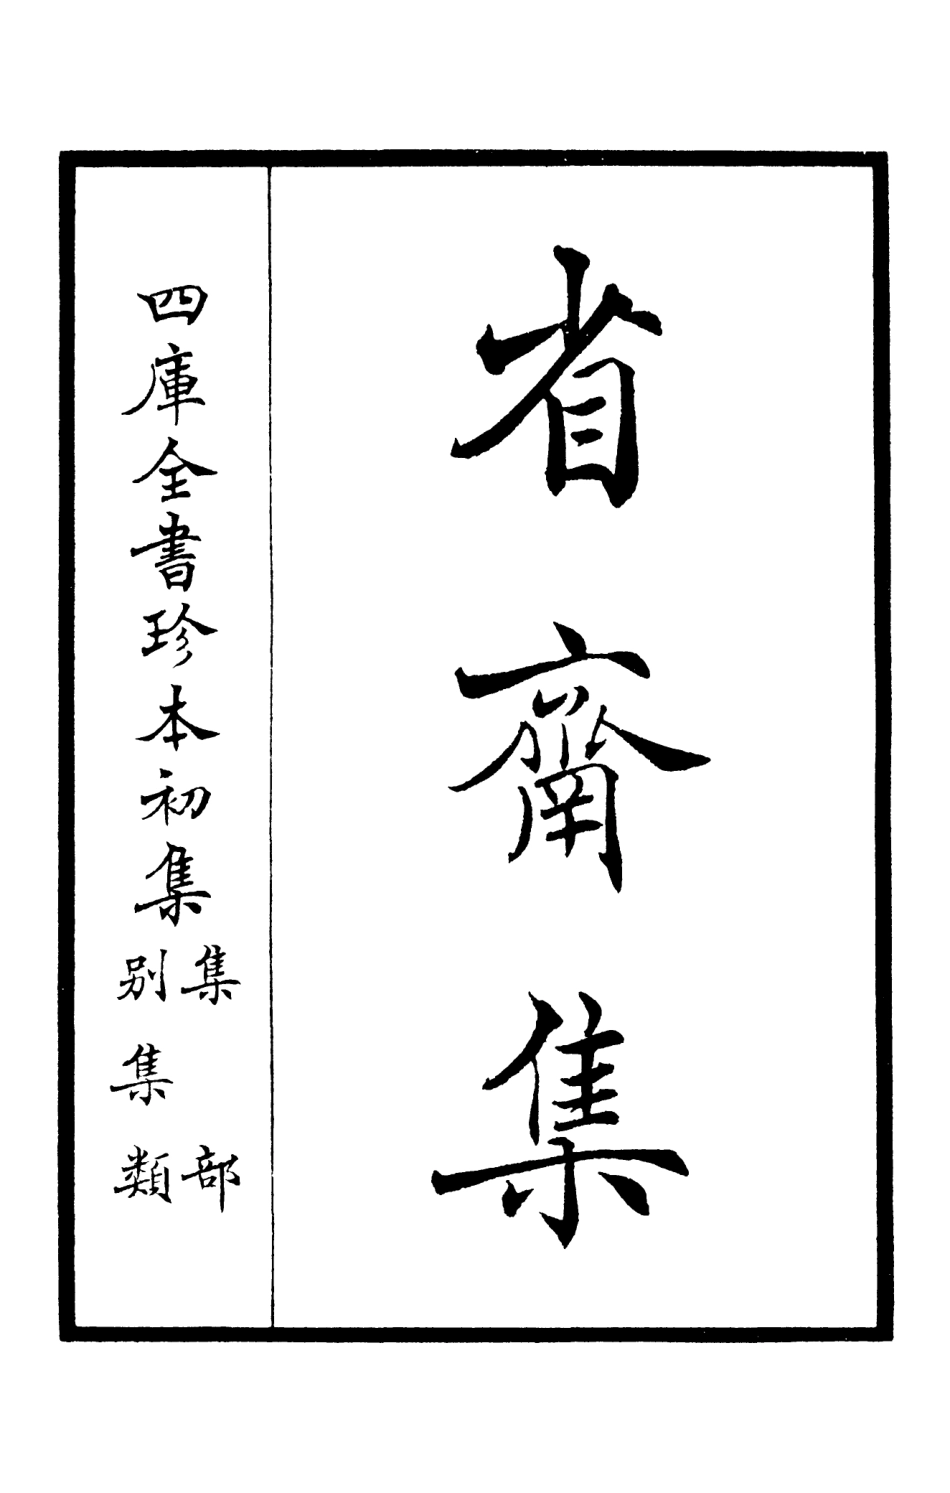 省齋集
四庫全書珍本初集
集部
別集類